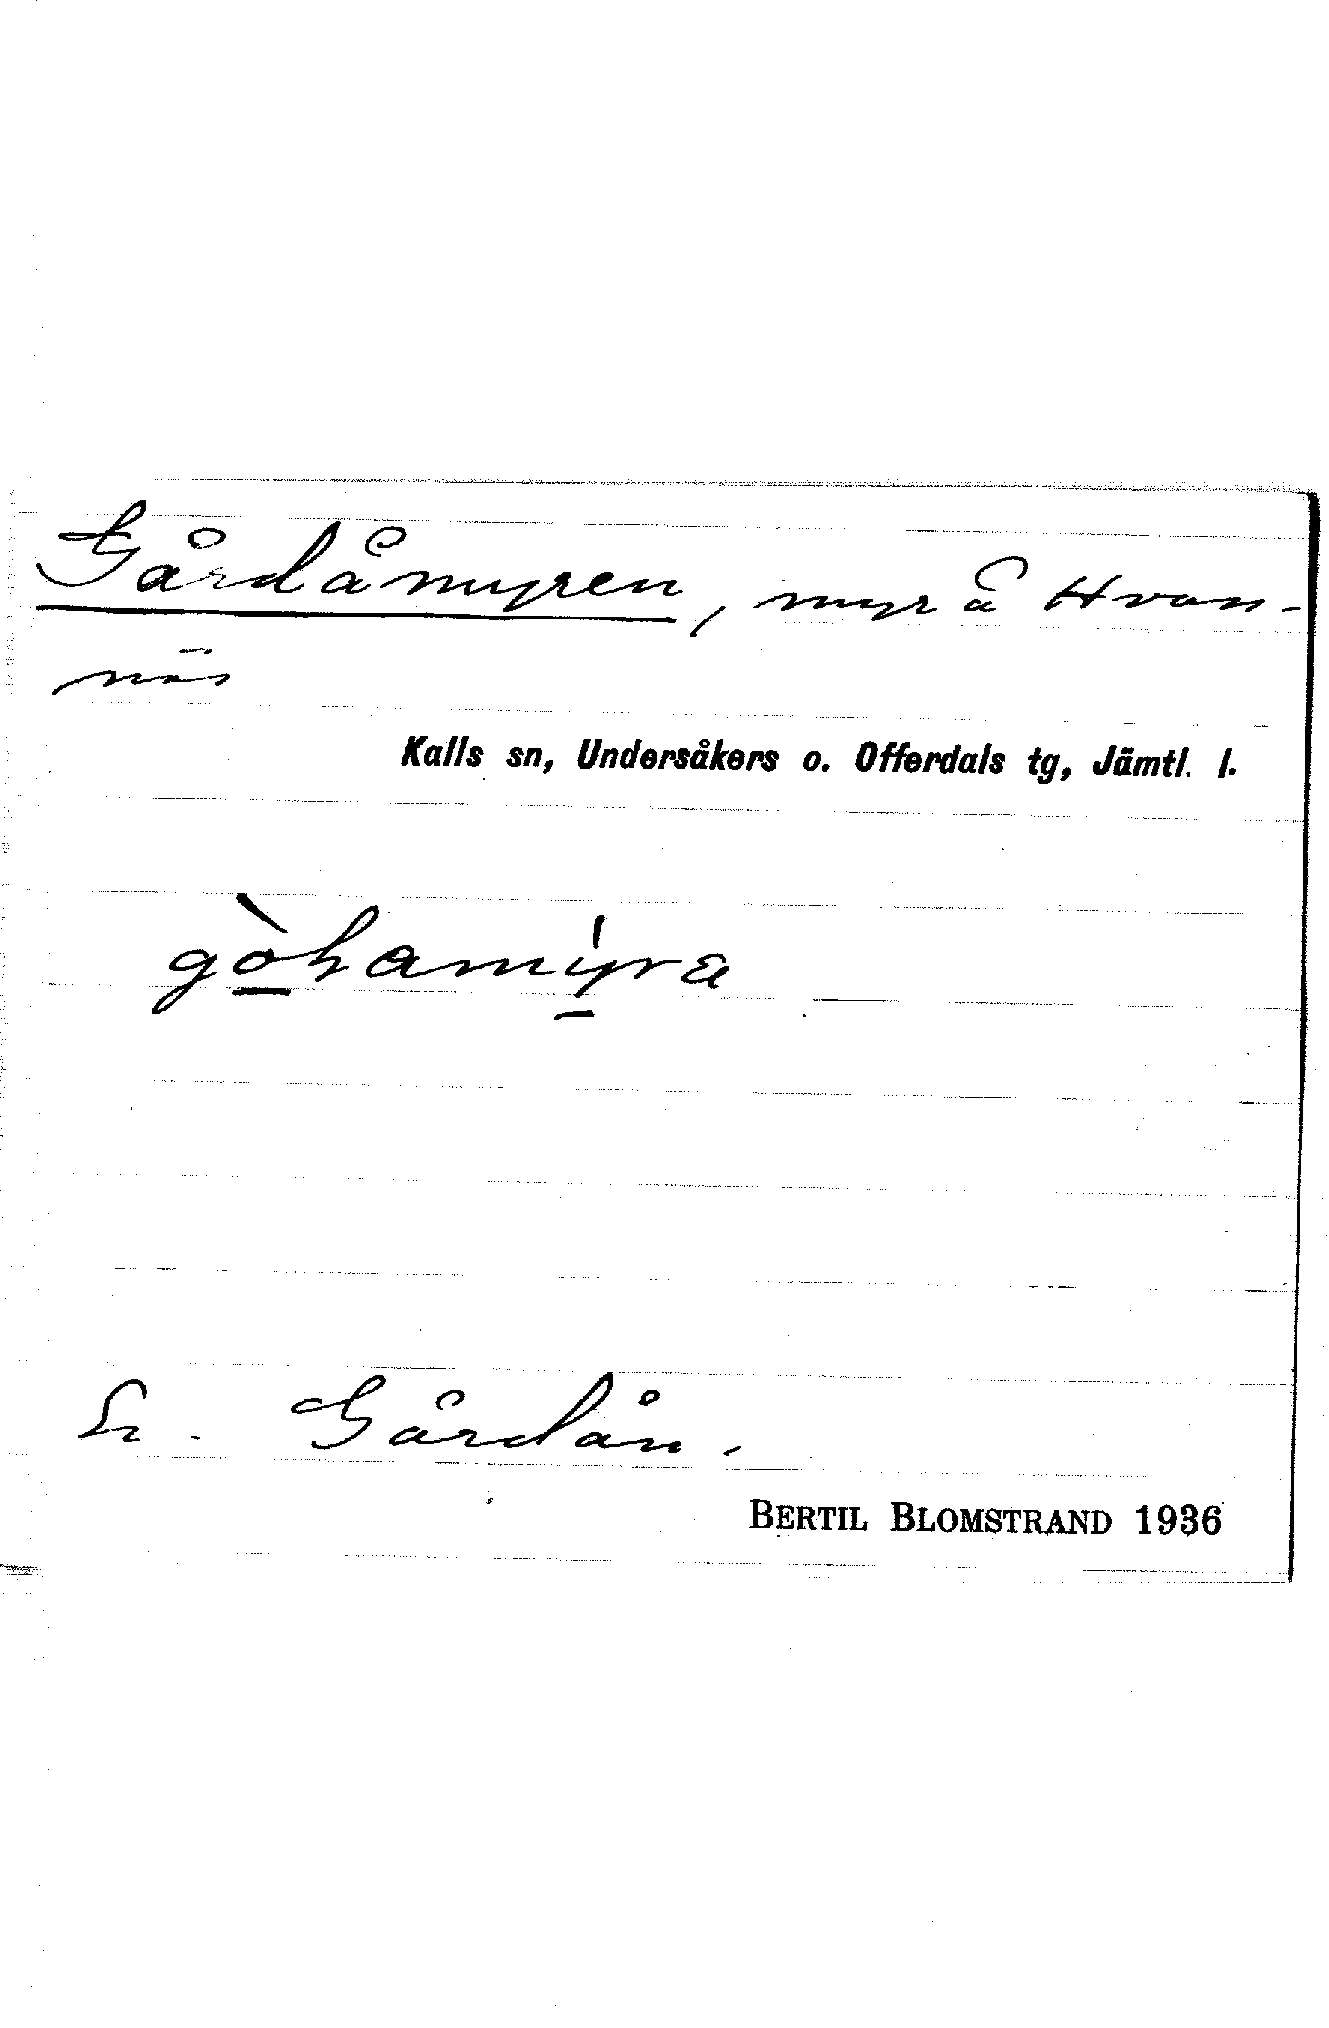 Gårdåmyren, myr å Hvan-
näs
Kalls sn, Undersåkers o. Offerdals tg, Jämtl. l.
Gårdån.
BERTIL BLOMSTRAND 1936